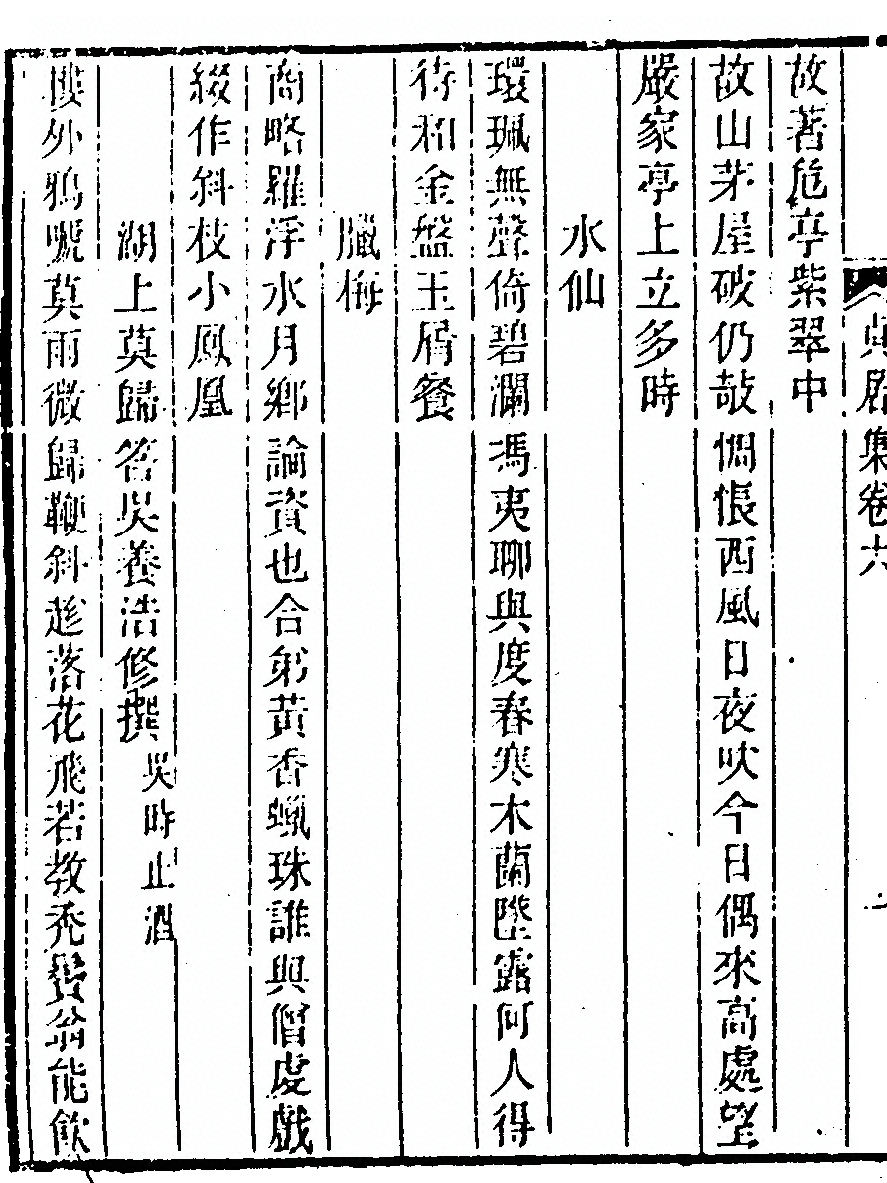 貞居集卷六
故著危亭紫翠中
故山茅屋破仍敧惆悵西風日夜吹今日偶來高處望
嚴家亭上立多時
水仙
環珮無聲倚碧瀾馮夷聊與度春寒木蘭墜露何人得
待和金盤玉屑餐
臘梅
商略羅浮水月鄉論資也合躬黃香蠟珠誰與僧虔戲
綴作斜枝小鳳凰
湖上莫歸答吳養浩修撰吳時止酒
樓外鴉號莫雨微歸鞭斜趁落花飛若教禿鬢翁能飲